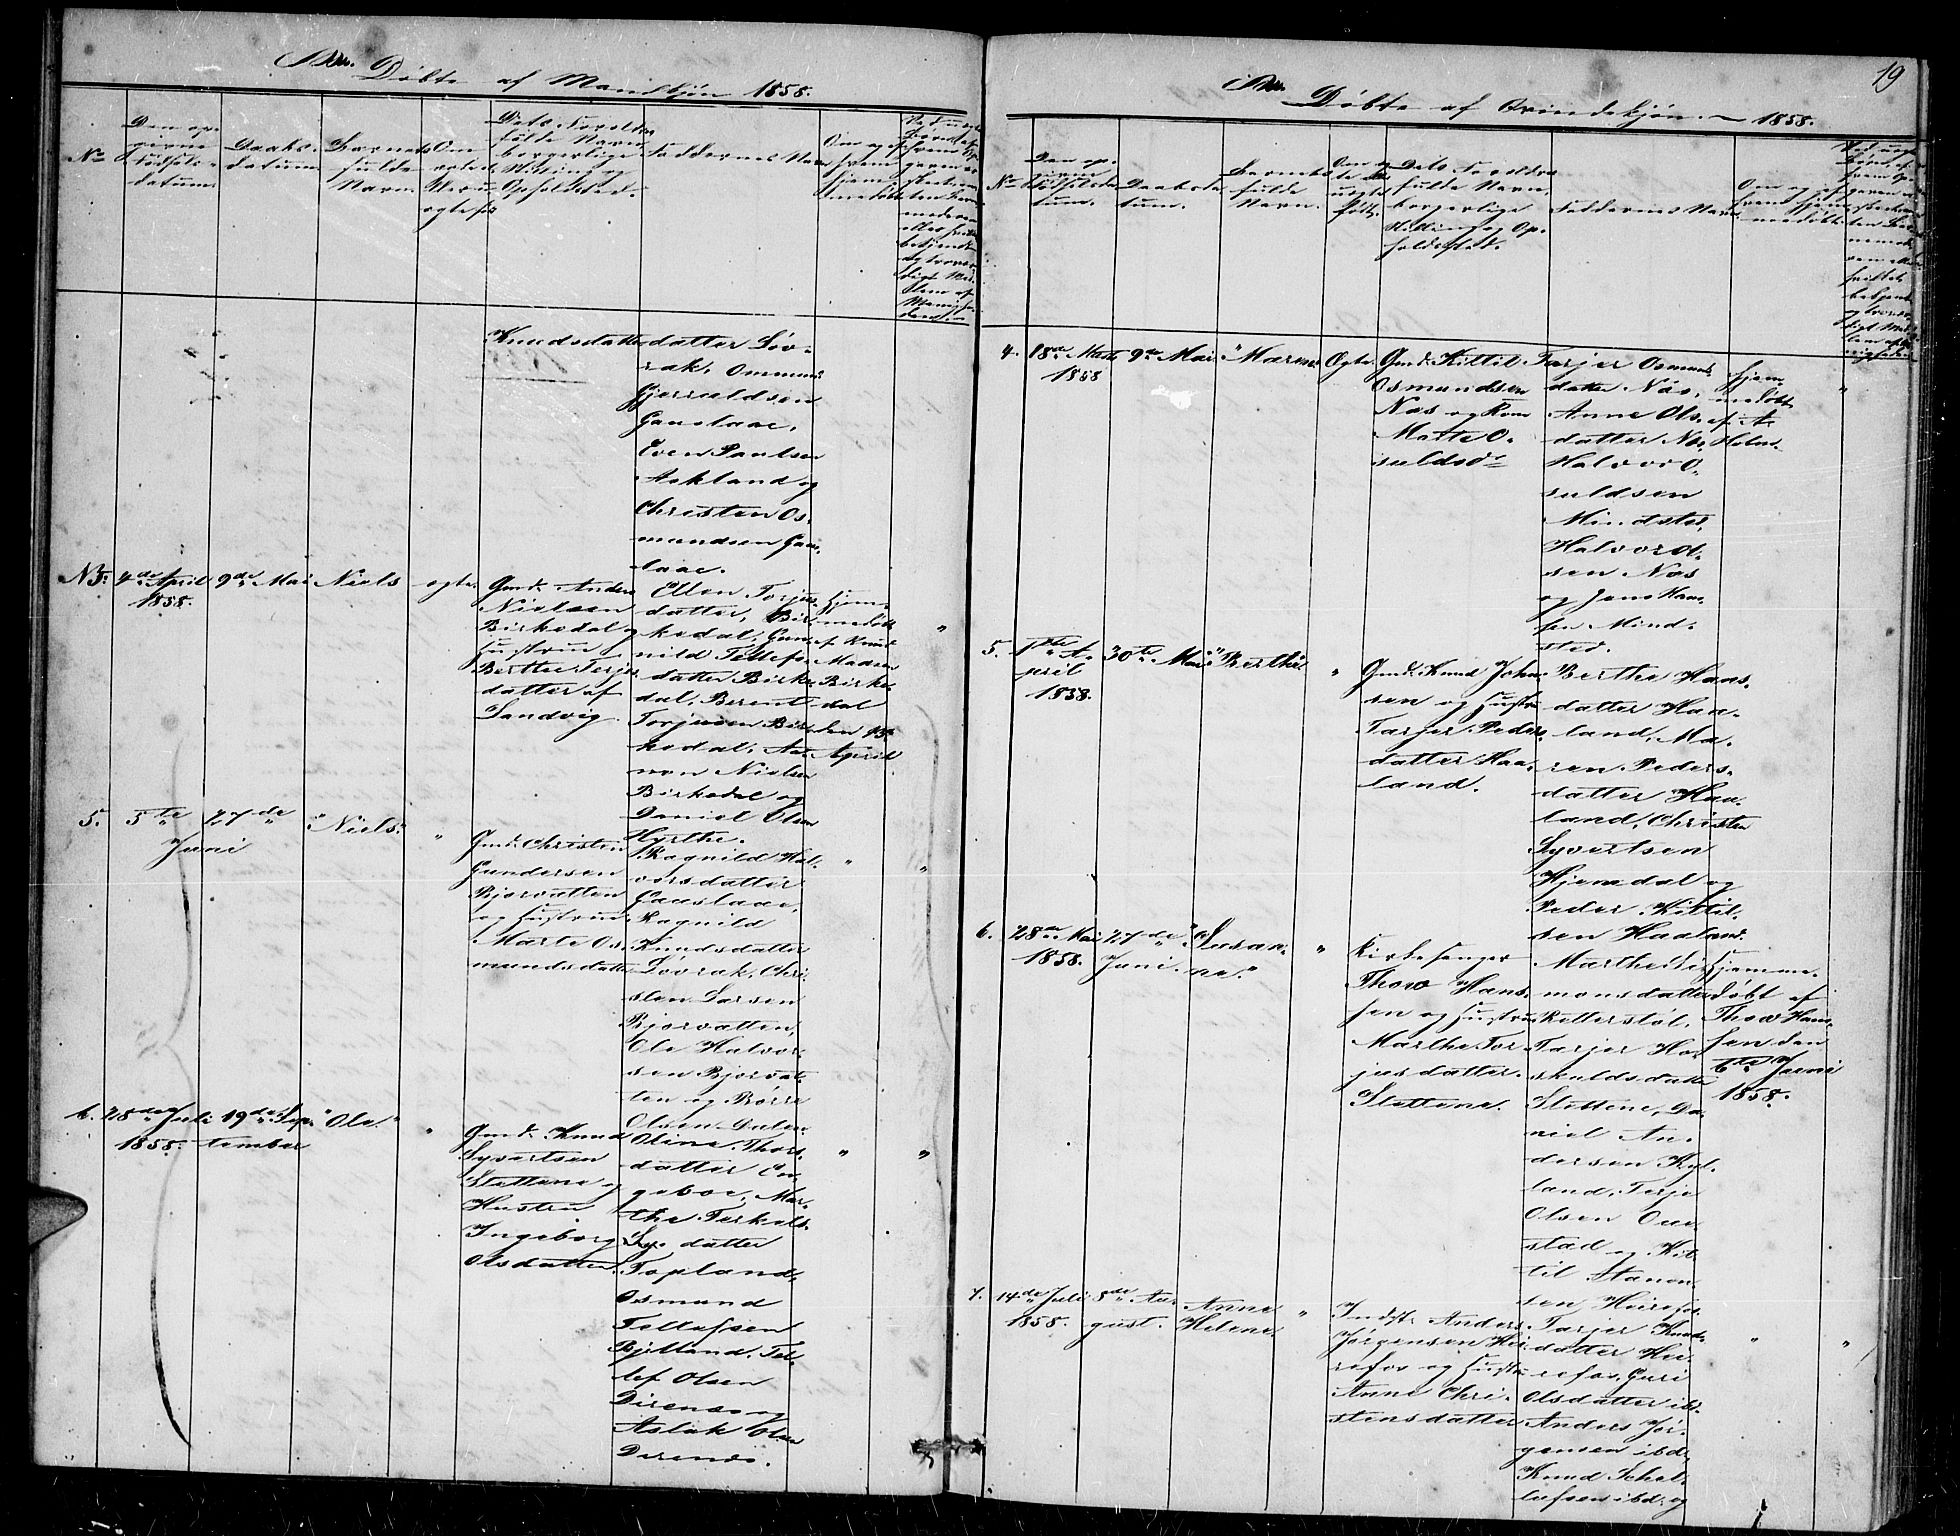 Døbte af Mandkjøn 1858.
No
Den op-
givne
fødsels-
datum.
Daabs-
datum.
Barnets
fulde
Navn
Om
ægte el.
uægte
født
Dets Forældres
fulde Navn
borgerlige
Stilling og
Opholdssted.
Faddernes Navn
Om og af
hvem
hjem-
medøbt
Knudsdatter
datter Løv-
rak, Ommund
Gjeruldsen
Gauslaae,
Even Paulsen
Askland og
Christen Os-
mundsen Gaus-
laae.
N3.
4de April
1858.
9de Mai
Niels
ægte.
Gmd. Anders
Nielsen
Birkedal og
Hustrue
Berthe Terjes-
datter af
Sandvig.
Ellen Torjus-
datter, Bir-
kedal, Gun-
nild Tellefs-
datter Birke-
dal, Berent
Torjusen Bir-
kedal, Aa-
non Nielsen
Birkedal og
Daniel Olsen
Hyrthe.
Hjem-
medøbt
af Knud
Madsen
Birke-
dal
den 13de
April
"
5.
5te
Juni
27de
"Niels"
"
Gmd. Christen
Gundersen
Bjorvatten
og Hustrue
Marte Os-
mundsdatter
Ragnild Hal-
vorsdatter
Gauslaae,
Ragnild
Knudsdatter
Løvrak, Chri-
sten Larsen
Bjorvatten,
Ole Halvor-
sen Bjorvat-
ten og Børre
Olsen Dalen.
"
"
6.
28de Juli
1858.
19de Sep-
tember
"Ole."
"
Gmd. Knud
Syvertsen
Slettene og
Hustru
Ingeborg
Olsdatter.
Oline Thors-
datter En-
geboe, Mar-
the Terkels-
datter
Topland,
Osmund
Tellefsen
Bjelland, Tel-
lef Olsen
Direnæs og
Aslak Olsen
Direnæs.
"
"
19
Døbte af Qvindekjøn. 1858.
No
Den op-
givne
fødselsda-
tum.
Daabsda-
tum.
Barnets
fulde
Navn.
Om æg-
te el.
uægte
født.
Dets Forældres
fulde Navn,
borgerlige
Stilling og Op-
holdssted.
Faddernes Navn.
Om og af
hvem hjem-
medøbt.
4.
18de Marts
1858
9de Mai
"Maren"
Ægte
Gmd. Kittil
Osmundsen
Næs og Kone
Marte O-
suldsdr
Tarjer Osmunds-
datter Næs,
Anne Ols-
datter Næs,
Halvor O-
suldsen
Mindsted,
Halvord-
sen Næs
og Jens Han-
sen Mind-
sted.
Hjem-
medøbt
af A.
Holm.
"
5.
1ste A-
pril
1858.
30te Mai
"Berthe"
"
Gmd. Knud John-
sen og Hustru
Tarjer Peders-
datter Haa-
land.
Berthe Hans-
datter Haa-
land, Ma-
ren Peders-
datter Haa-
land, Christen
Syvertsen
Hjemdal og
Peder Kittil-
sen Haaland.
6.
28de Mai
1858.
27de
Juni.
"Susan-
ne."
"
Kirkesanger
Thore Hans-
sen og Hustru
Marthe Tor-
jusdatter
Slettene.
Marthe Si-
monsdatter
Retterstøl,
Tarjer Ho-
skuldsdatter
Slettene, Da-
niel An-
dersen Kyl-
land, Terje
Olsen Oue-
stad og Kit-
til Stanon-
sen, Heirefos.
Hjemme-
døbt af
Thore Han-
sen den
6te Juni
1858.
7.
14de Juli
1858.
8de Au-
gust.
Anne
Helene.
"
Indst. Anders
Jørgensen Hei-
refos og Hustru
Anne Chri-
stensdatter
Tarjer Knuds-
datter Hei-
refos, Guri
Olsdatter ibd.
Anders Jør-
gensen ibd.
Knud Schal-
lufsen ibd. og
"
"